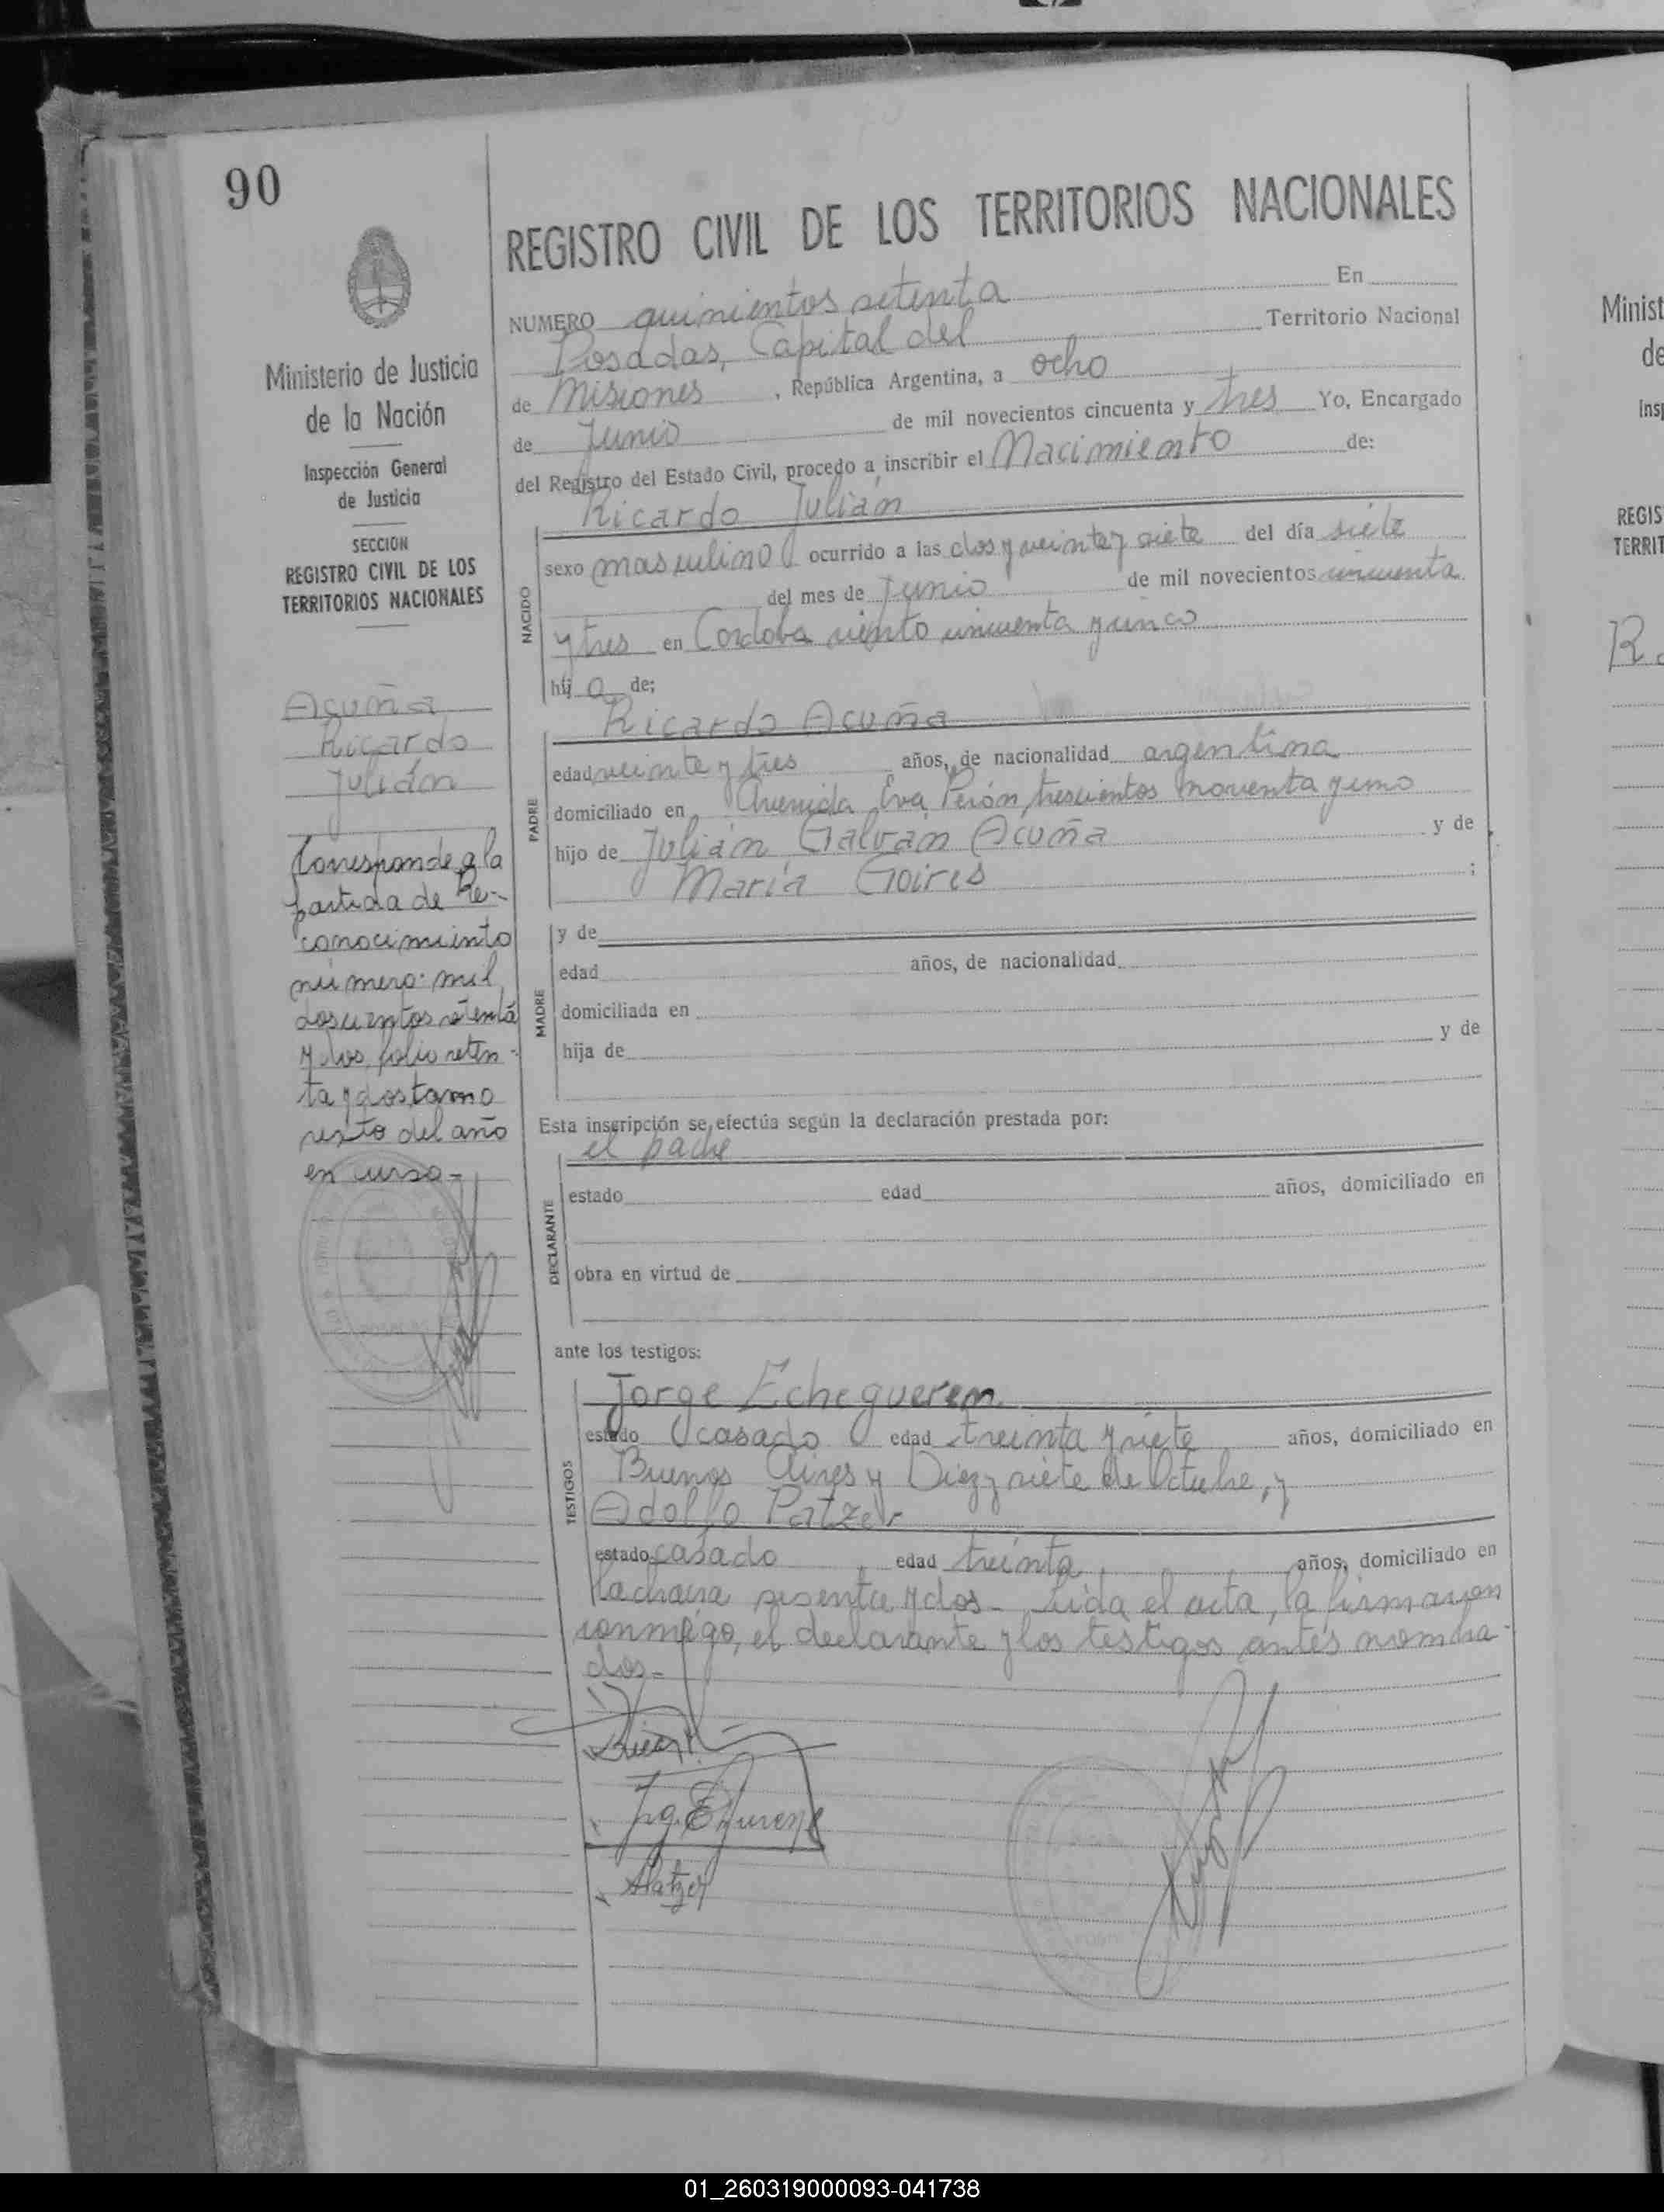 90
Ministerio de Justicia
de la Nación
Inspección General
de Justicia
SECCION
REGISTRO CIVIL DE LOS
TERRITORIOS NACIONALES
Acuña
Ricardo
Julián
Corresponde a la
partida de Re-
conocimiento
número: mil
doscientos setenta
y dos, folio seten-
ta y dos, tomo
sexto del año
en curso-
REGISTRO CIVIL DE LOS TERRITORIOS NACIONALES
NUMERO quinientos setenta En
Posadas, Capital del Territorio Nacional
de Misiones , República Argentina, a ocho
de Junio de mil novecientos cincuenta y tres Yo, Encargado
del Registro del Estado Civil, procedo a inscribir el Nacimiento de:
NACIDO
Ricardo Julián
sexo masculino ocurrido a las dos y veinte y siete del día siete
del mes de Junio de mil novecientos cincuenta
y tres en Cordoba ciento cincuenta y cinco
hij o de;
PADRE
Ricardo Acuña
edad veinte y tres años, de nacionalidad argentina
domiciliado en Avenida Eva Perón trescientos noventa y uno
hijo de Julián Galván Acuña y de
María Goires ;
MADRE
y de
edad años, de nacionalidad
domiciliada en
hija de y de
Esta inscripción se efectúa según la declaración prestada por:
DECLARANTE
el padre
estado edad años, domiciliado en
obra en virtud de
ante los testigos:
TESTIGOS
Jorge Echegueren
estado casado edad treinta y siete años, domiciliado en
Buenos Aires y Diez y siete de Octubre, y
Adolfo Patzer
estado casado edad treinta años, domiciliado en
la chacra sesenta y dos- Leida el acta, la firmaron
conmigo, el declarante y los testigos antes nombra-
dos-
Minist
de
Insp
REGIS
TERRIT
01_260319000093-041738